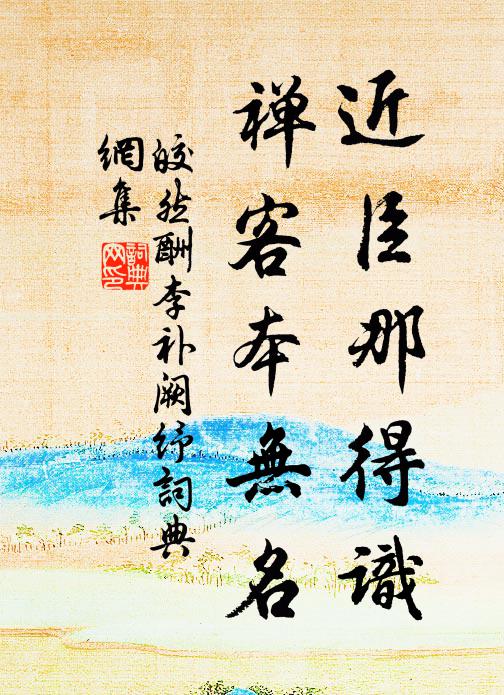 近臣那得識
禅客本無名
皎然酬李补阙纾詞典
網集
詞典
网印